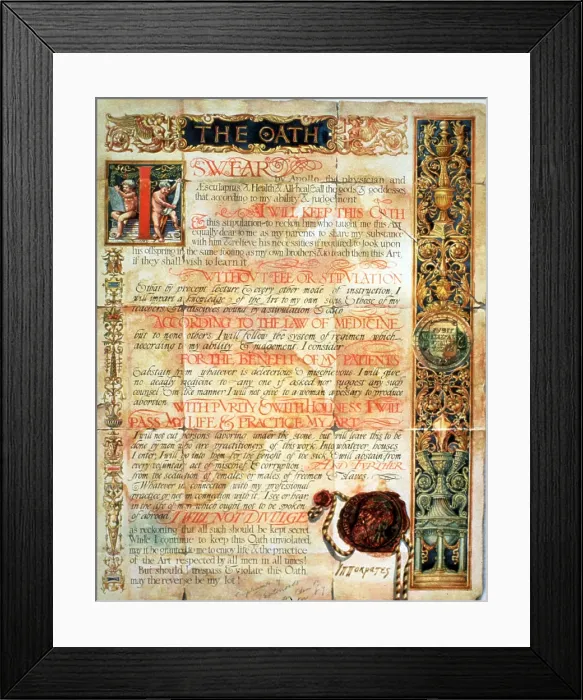 THE OATH
I SWEAR
by Apollo, the physician and
Æsculapius, & Health & All-heal & all the gods & goddesses
that according to my ability & judgement
I WILL KEEP THIS OATH
& this stipulation–to reckon him who taught me this Art
equally dear to me as my parents, to share my substance
with him & relieve his necessities if required to look upon
his offspring in the same footing as my own brothers & to teach them this Art,
if they shall wish to learn it
WITHOUT FEE OR STIPULATION
& that by precept, lecture & every other mode of instruction, I
will impart a knowledge of the Art to my own sons & those of my
teachers & to disciples bound by a stipulation & oath
ACCORDING TO THE LAW OF MEDICINE
but to none others. I will follow the system of regimen which
according to my ability & judgement I consider
FOR THE BENEFIT OF MY PATIENTS
& abstain from whatever is deleterious & mischievous. I will give
no deadly medicine to any one if asked nor suggest any such
counsel & in like manner I will not give to a woman a pessary to produce
abortion.
WITH PVRITY & WITH HOLINESS I WILL
PASS MY LIFE & PRACTICE MY ART
I will not cut persons laboring under the stone, but will leave this to be
done by men who are practitioners of this work. Into whatever houses
I enter, I will go into them for the benefit of the sick & will abstain from
every voluntary act of mischief & corruption AND FVRTHER
from the seduction of females or males of freemen & slaves
Whatever in connection with my professional
practice or not in connection with it, I see or hear,
in the life of men which ought not to be spoken
of abroad I WILL NOT DIVULGE
as reckoning that all such should be kept secret
While I continue to keep this Oath unviolated,
may it be granted to me to enjoy life & the practice
of the Art respected by all men in all times!
But should I trespass & violate this Oath,
may the reverse be my lot!
Ιπποκρατες